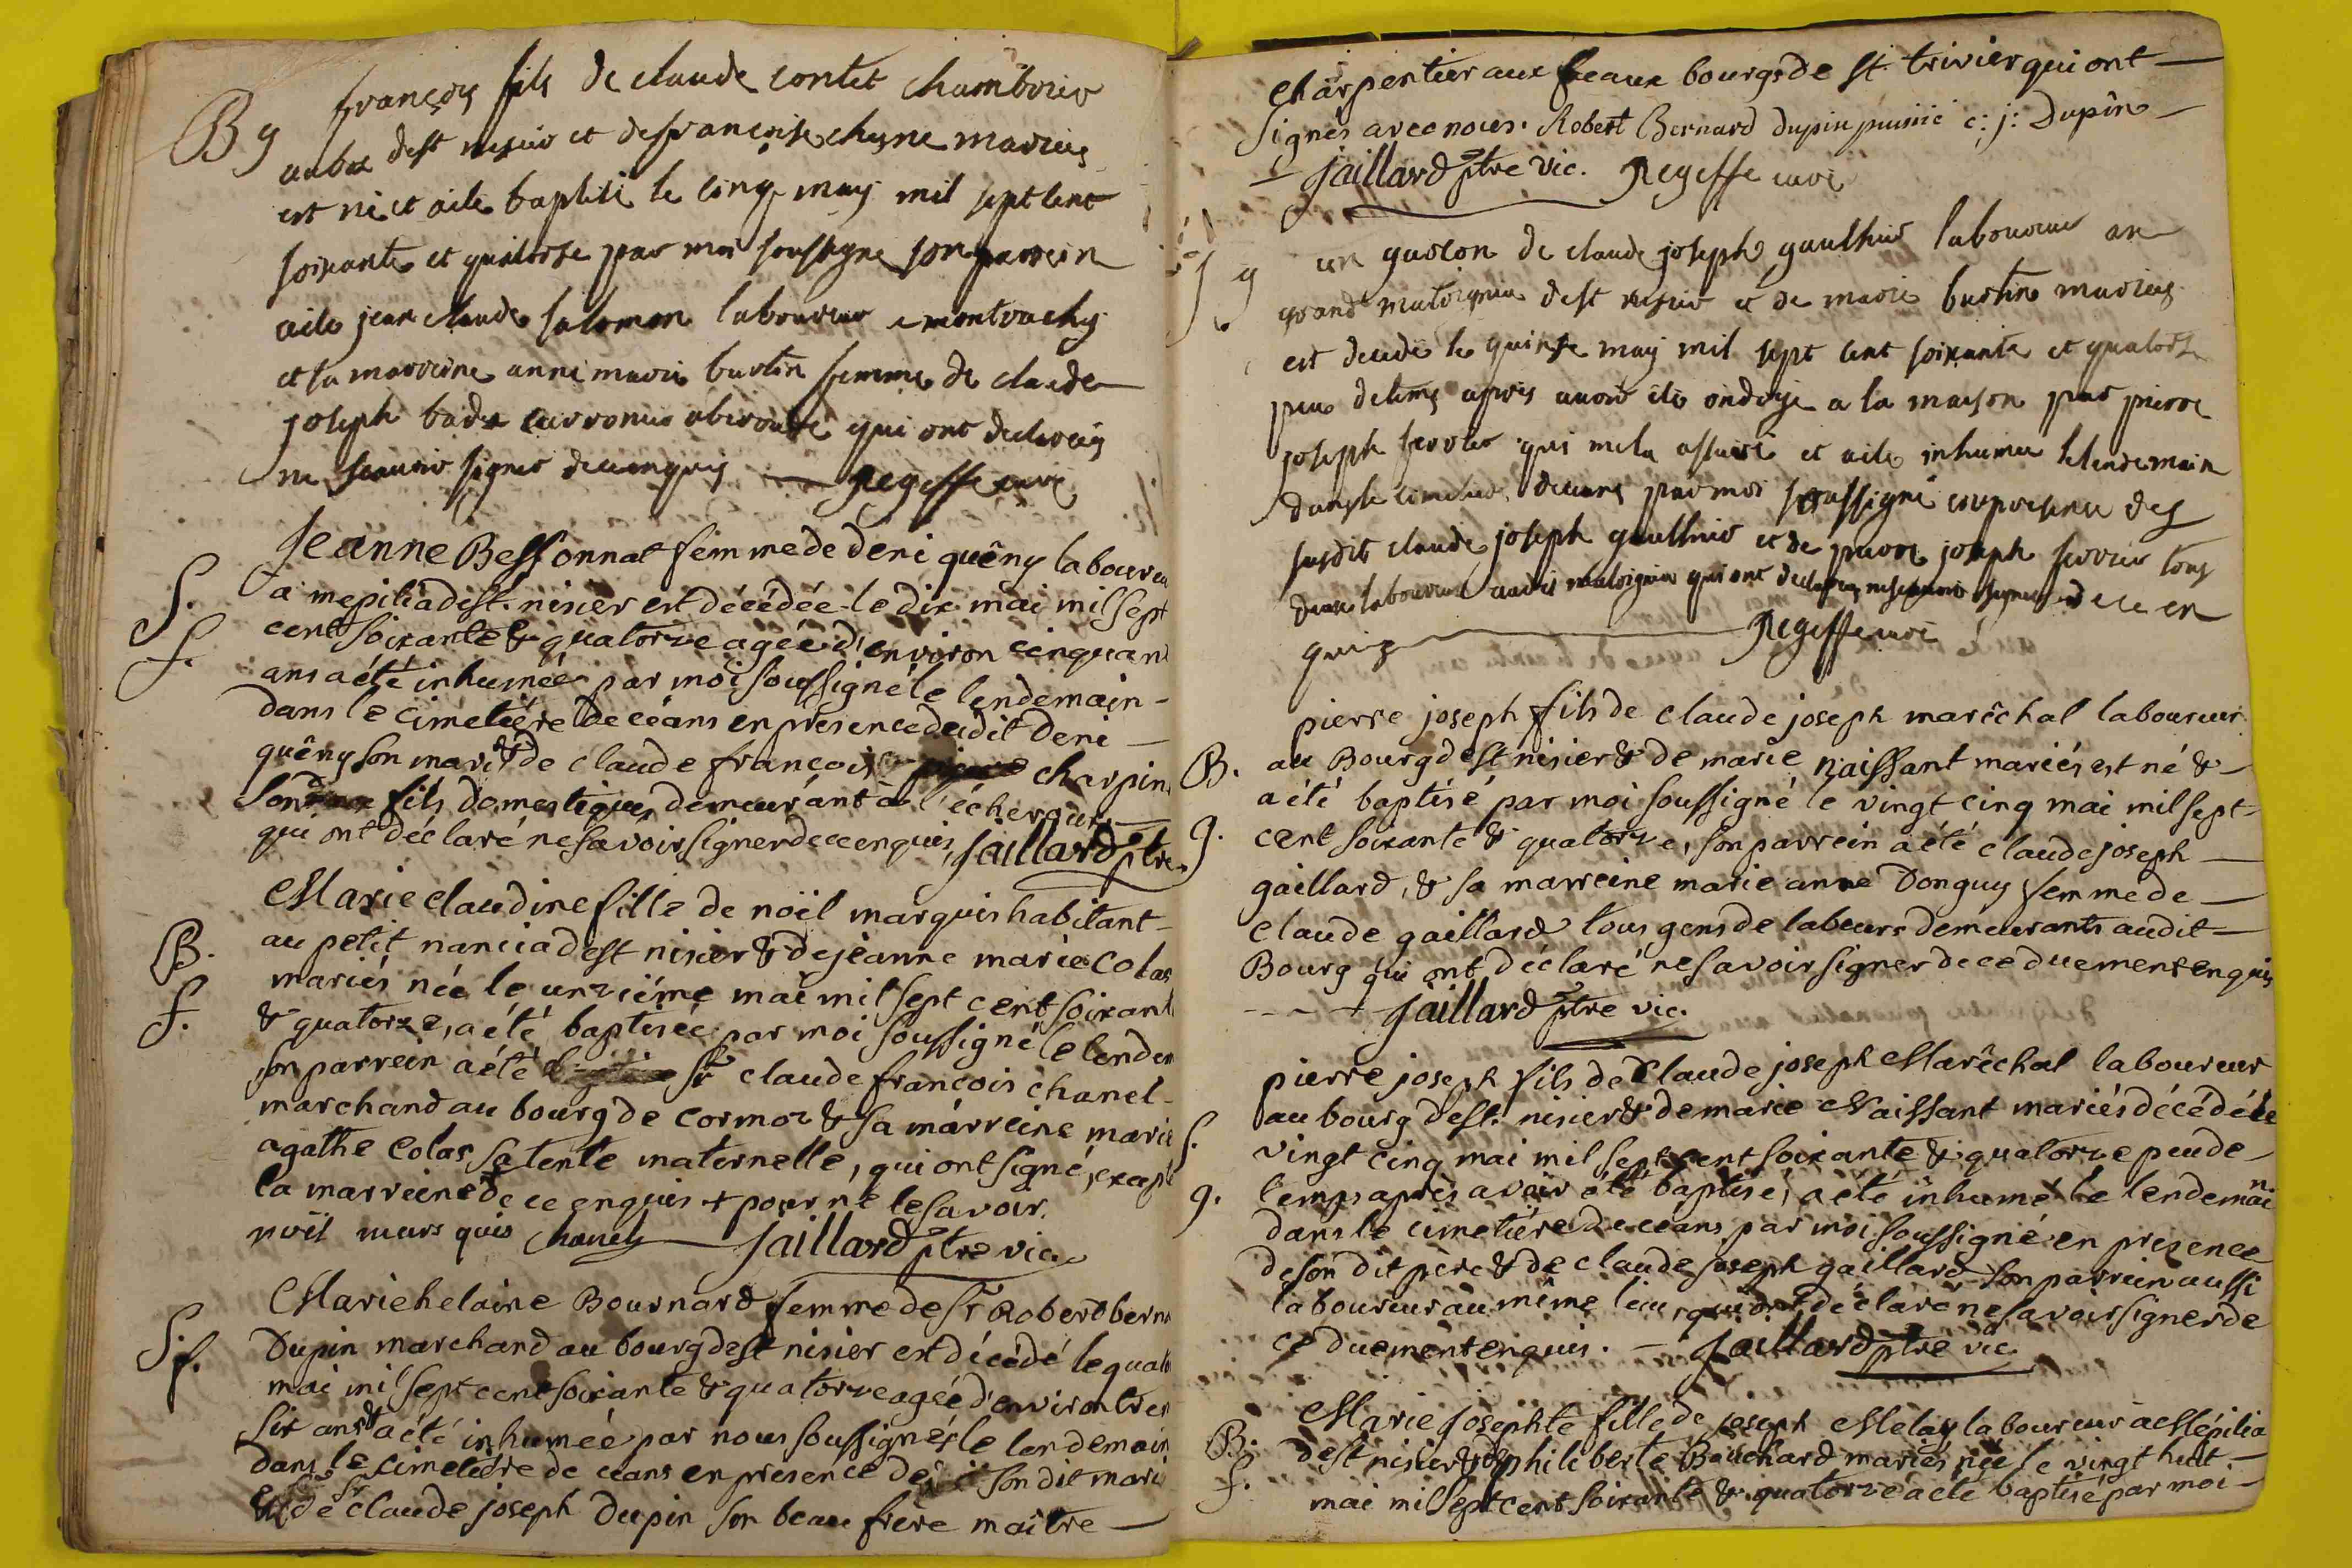 B g
françois fils de claude contet chambrier
aubas dest nizier et de françoise chesne mariés
est né et a ete baptisé le cinq may mil sept cent
soixante et quatorze par moi soussigné son parrein
a ete jean claude salomon laboureur a montrachy
et sa marreine anne marie burtin femme de claude
joseph badez qui ont declarés
ne scauoir signer de ce enquis Regeffe curé
S.
f.
Jeanne Bessonnat femme de deni quêny laboureu
a mepilia de st. nisier est décédée le dix mai mil sept
cent soixante & quatorze agée d'environ cinquant
ans a été inhumée par moi soussigné le lendemain -
dans le cimetiére de céans en présence du dit deni
quêny son mari & de claude francois charpin
son fils domestique demeurant à l'écheraux
qui ont déclaré ne savoir signer de ce enquis, Jaillard ptre.
B.
f.
Marie claudine fille de noël marquis habitant -
au petit nancia de st nisier & de jeanne marie Colas
mariés née le unziéme mai mil sept cent soixant
& quatorze, a été baptisée par moi soussigné le lendem
son parrein a été Sr claude francois chanel -
marchand au bourg de cormoz & sa marreine marie
agathe Colas sa tente maternelle, qui ont signé, except
la marreine de ce enquis + pour ne le savoir.
noël mars quis chanel Jaillard ptre vic.
S.
f.
Marie helaine Bournard femme de Sr Robert berna
Dupin marchand au bourg de st nisier est décédé le quato
mai mil sept cent soixante & quatorze agée d'environ tren
six ans & a été inhumée par nous soussignés le lendemain
dans le cimetiére de ceans en présence de son dit mari
& de Sr claude joseph Dupin son beau frère maitre
charpentier aux feaux bourgs de st. trivier qui ont
signés avec nous. Robert Bernard dupin c: j: Dupin
Jaillard ptre vic. Regeffe curé
S g
un garcon de claude joseph gaulthier laboureur au
grand matoigniea dest nizier et de marie burtin mariés
est decede le quinze may mil sept cent soixante et quatorze
peu de tems apres auoir ete ondoyé a la maison par pierre
joseph ferrier qui me la assuré et a ete inhumé le lendemain
dans le cimetier de ceans par moi soussigné en presence des
susdits claude joseph gaulthier et de pierre joseph ferrier tous
deux laboureurs audit matoigniea qui ont declarés ne scauoir signer de ce en
quis Regeffe curé
B.
g.
pierre joseph fils de claude joseph marêchal laboureur
au Bourg de st nisier & de marie naissant mariés est né &
a été baptisé par moi soussigné le vingt cinq mai mil sept
cent soixante & quatorze, son parrein a été claude joseph
gaillard, & sa marreine marie anne Donguy femme de
claude gaillard tous gens de labeurs demeurants audit
Bourg qui ont déclaré ne savoir signer de ce duement enquis
Jaillard ptre vic.
S.
g.
pierre joseph fils de Claude joseph Marêchal laboureur
au bourg de st. nisier & de marie Naissant mariés décédé le
vingt cinq mai mil sept cent soixante & quatorze peu de
temps après avoir été baptisé, a été inhumé le lendemain
dans le cimetiére de ceans par moi soussigné en presence
de son dit père & de claude joseph gaillard son parrein aussi
laboureur au même lieu, qui ont déclaré ne savoir signer de
ce duement enquis. Jaillard ptre vic.
B.
f.
Marie Josephte fille de joseph Melay laboureur a Mépilia
de st nisier & de philiberte Bouchard mariés née le vingt huit
mai mil sept cent soixante & quatorze a été baptisé par moi